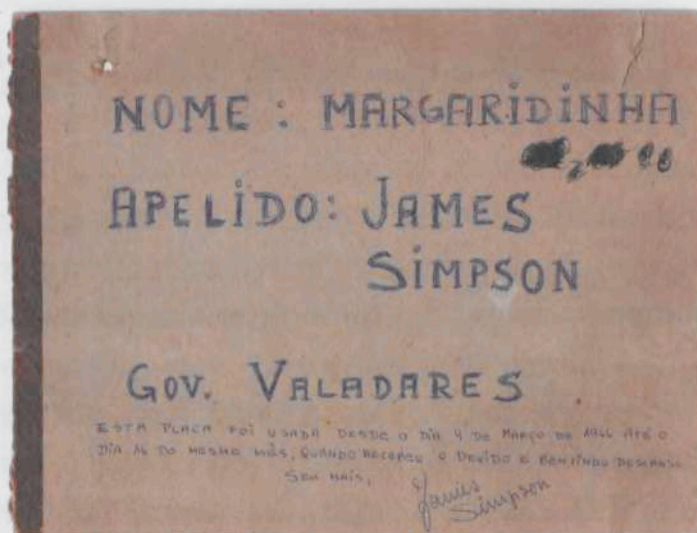 NOME : MARGARIDINHA
APELIDO: JAMES
SIMPSON
GOV. VALADARES
ESTA PLACA FOI USADA DESDE O DIA 4 DE MARÇO DE 1966 ATÉ O
DIA 16 DO MESMO MÊS, QUANDO RECEBEU O DEVIDO E BENVINDO DESCANSO
SEM MAIS,
James
Simpson